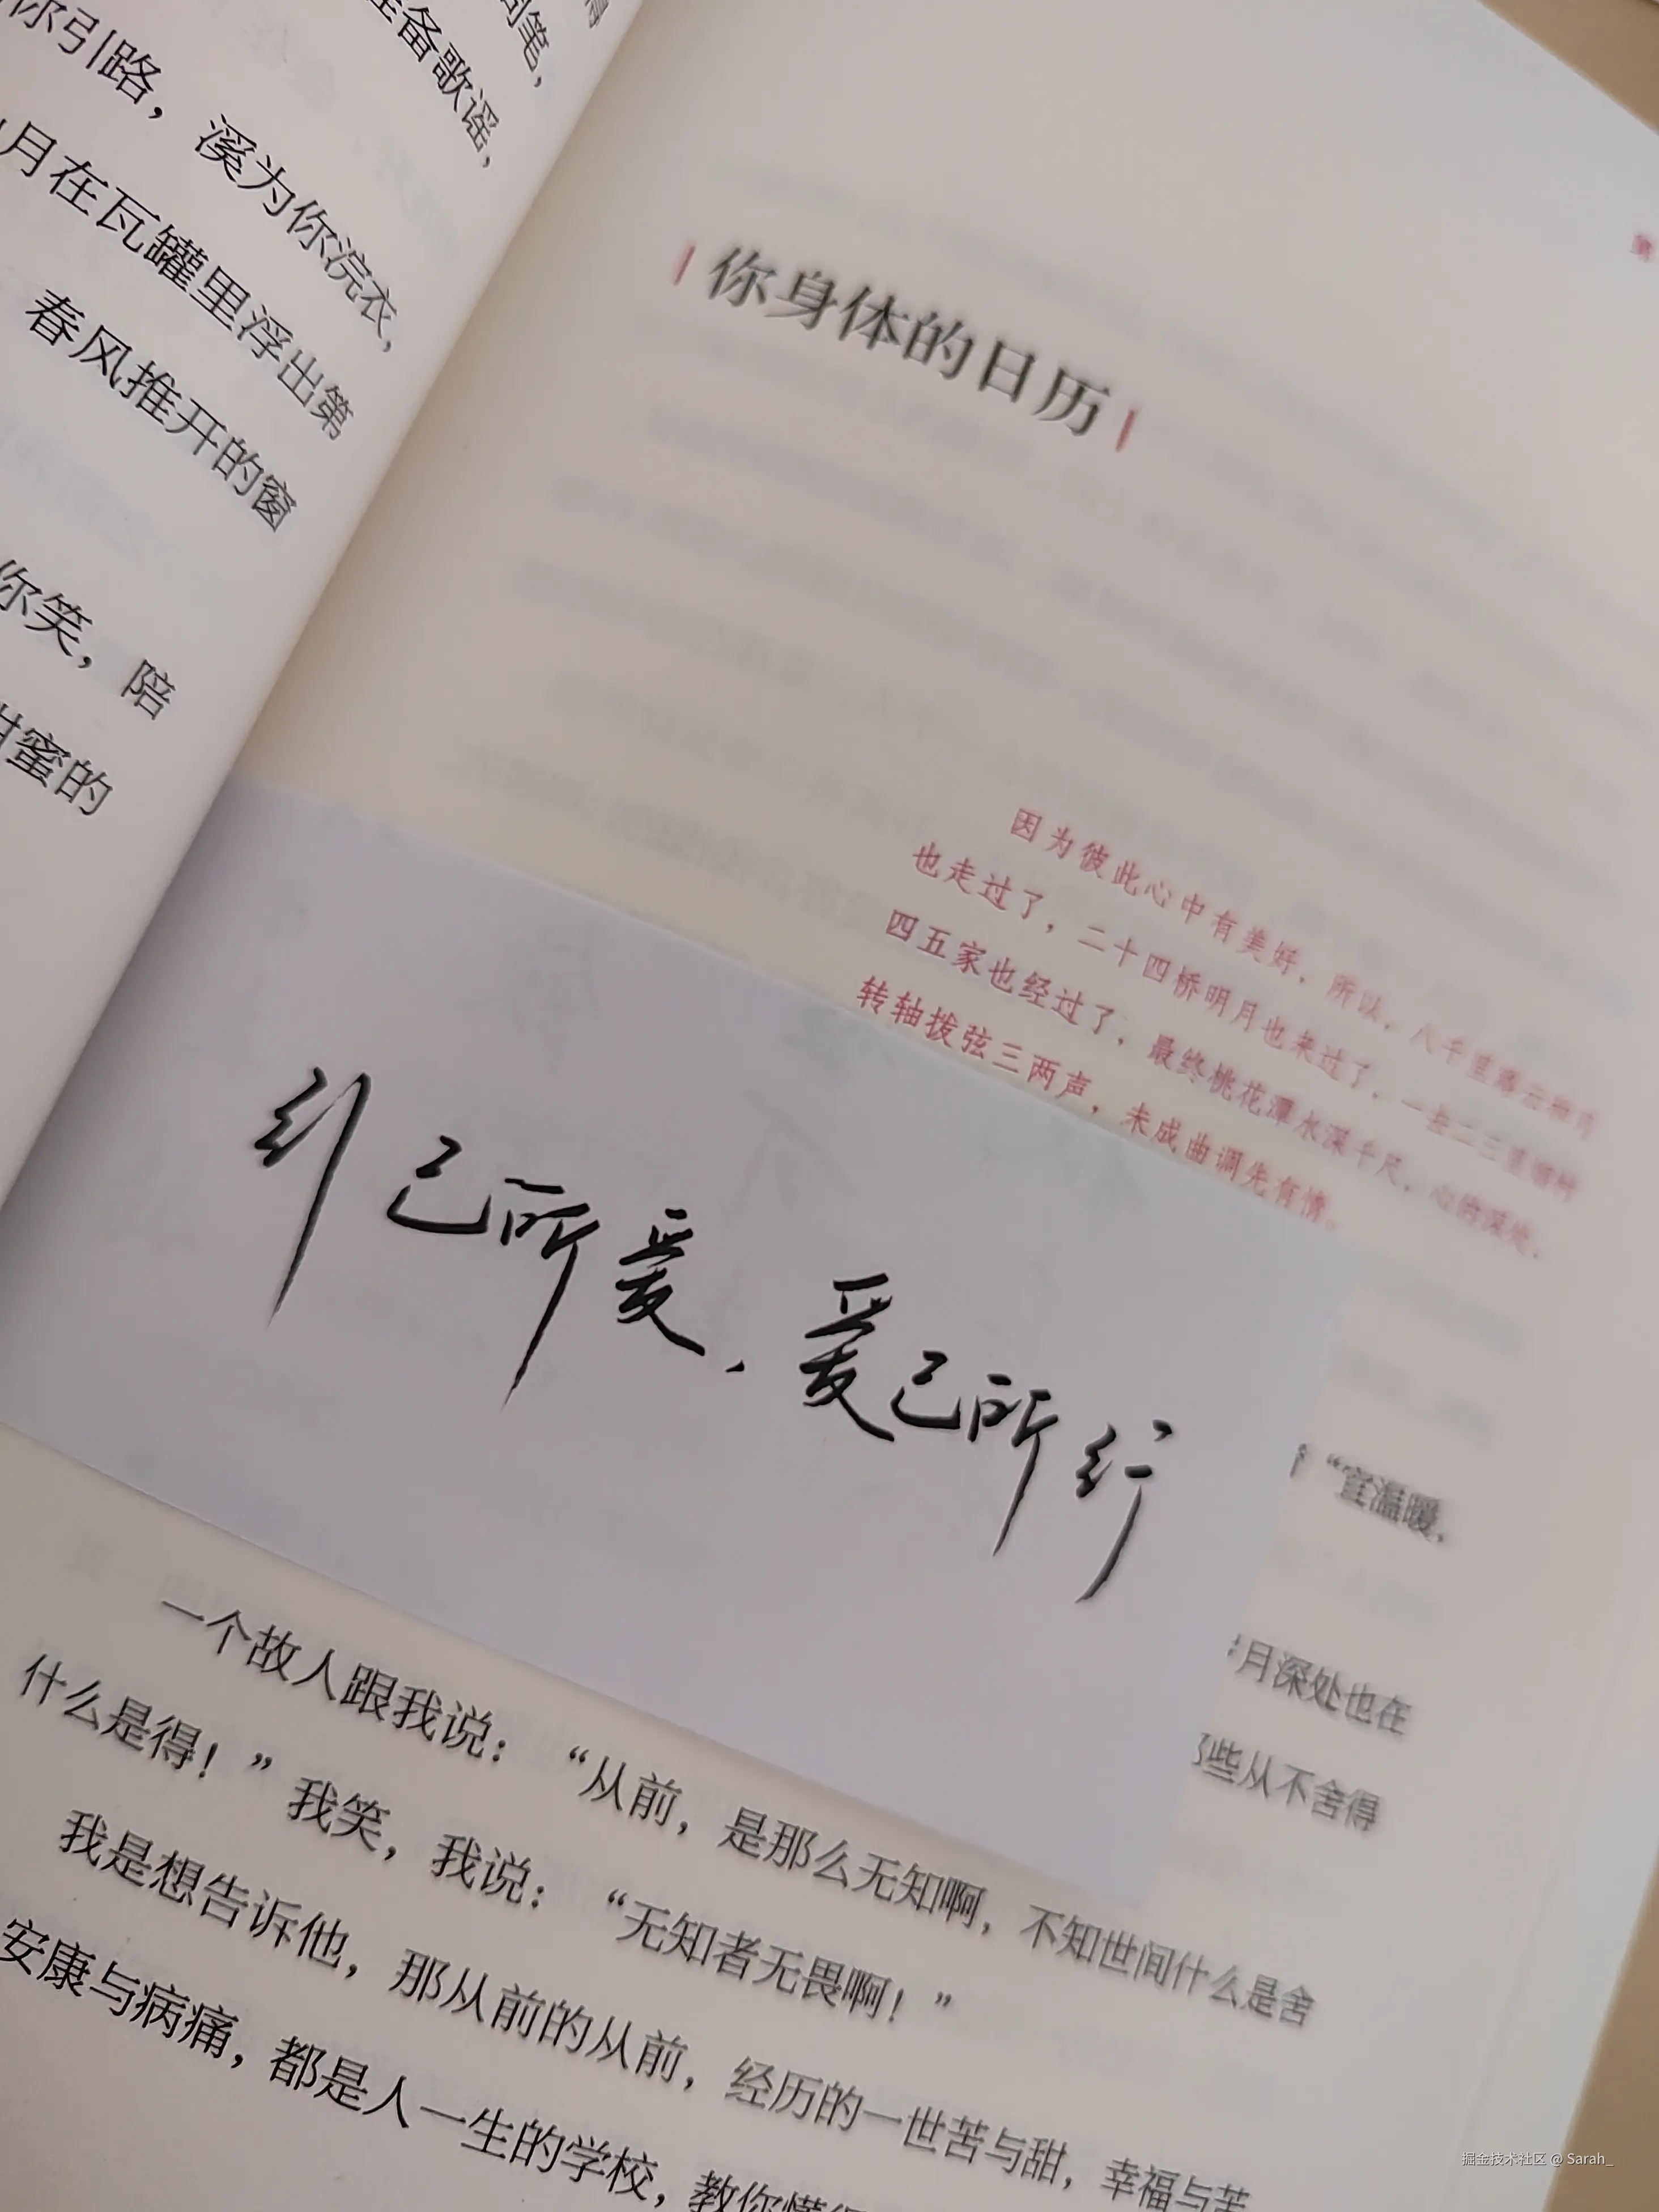 得
笔，
备歌谣，
你引路，溪为你浣衣，
月在瓦罐里浮出第
春风推开的窗
你笑，陪
甜蜜的
你身体的日历
因为彼此心中有美好，所以，八千里路云和月
也走过了，二十四桥明月也来过了，一去二三里烟村
四五家也经过了，最终桃花潭水深千尺，心的深处，
转轴拨弦三两声，未成曲调先有情。
行己所爱，爱己所行
“宜温暖，
月深处也在
些从不舍得
一个故人跟我说：“从前，是那么无知啊，不知世间什么是舍
什么是得！”我笑，我说：“无知者无畏啊！”
我是想告诉他，那从前的从前，经历的一世苦与甜，幸福与苦
安康与病痛，都是人一生的学校，教你懂得
掘金技术社区 @ Sarah_